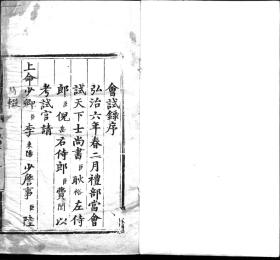 會試錄序
弘治六年春二月禮部當會
試天下士尚書臣耿裕左侍
郎臣倪岳右侍郎臣費誾以
考試官請
上命少卿臣李東陽少詹事臣陸